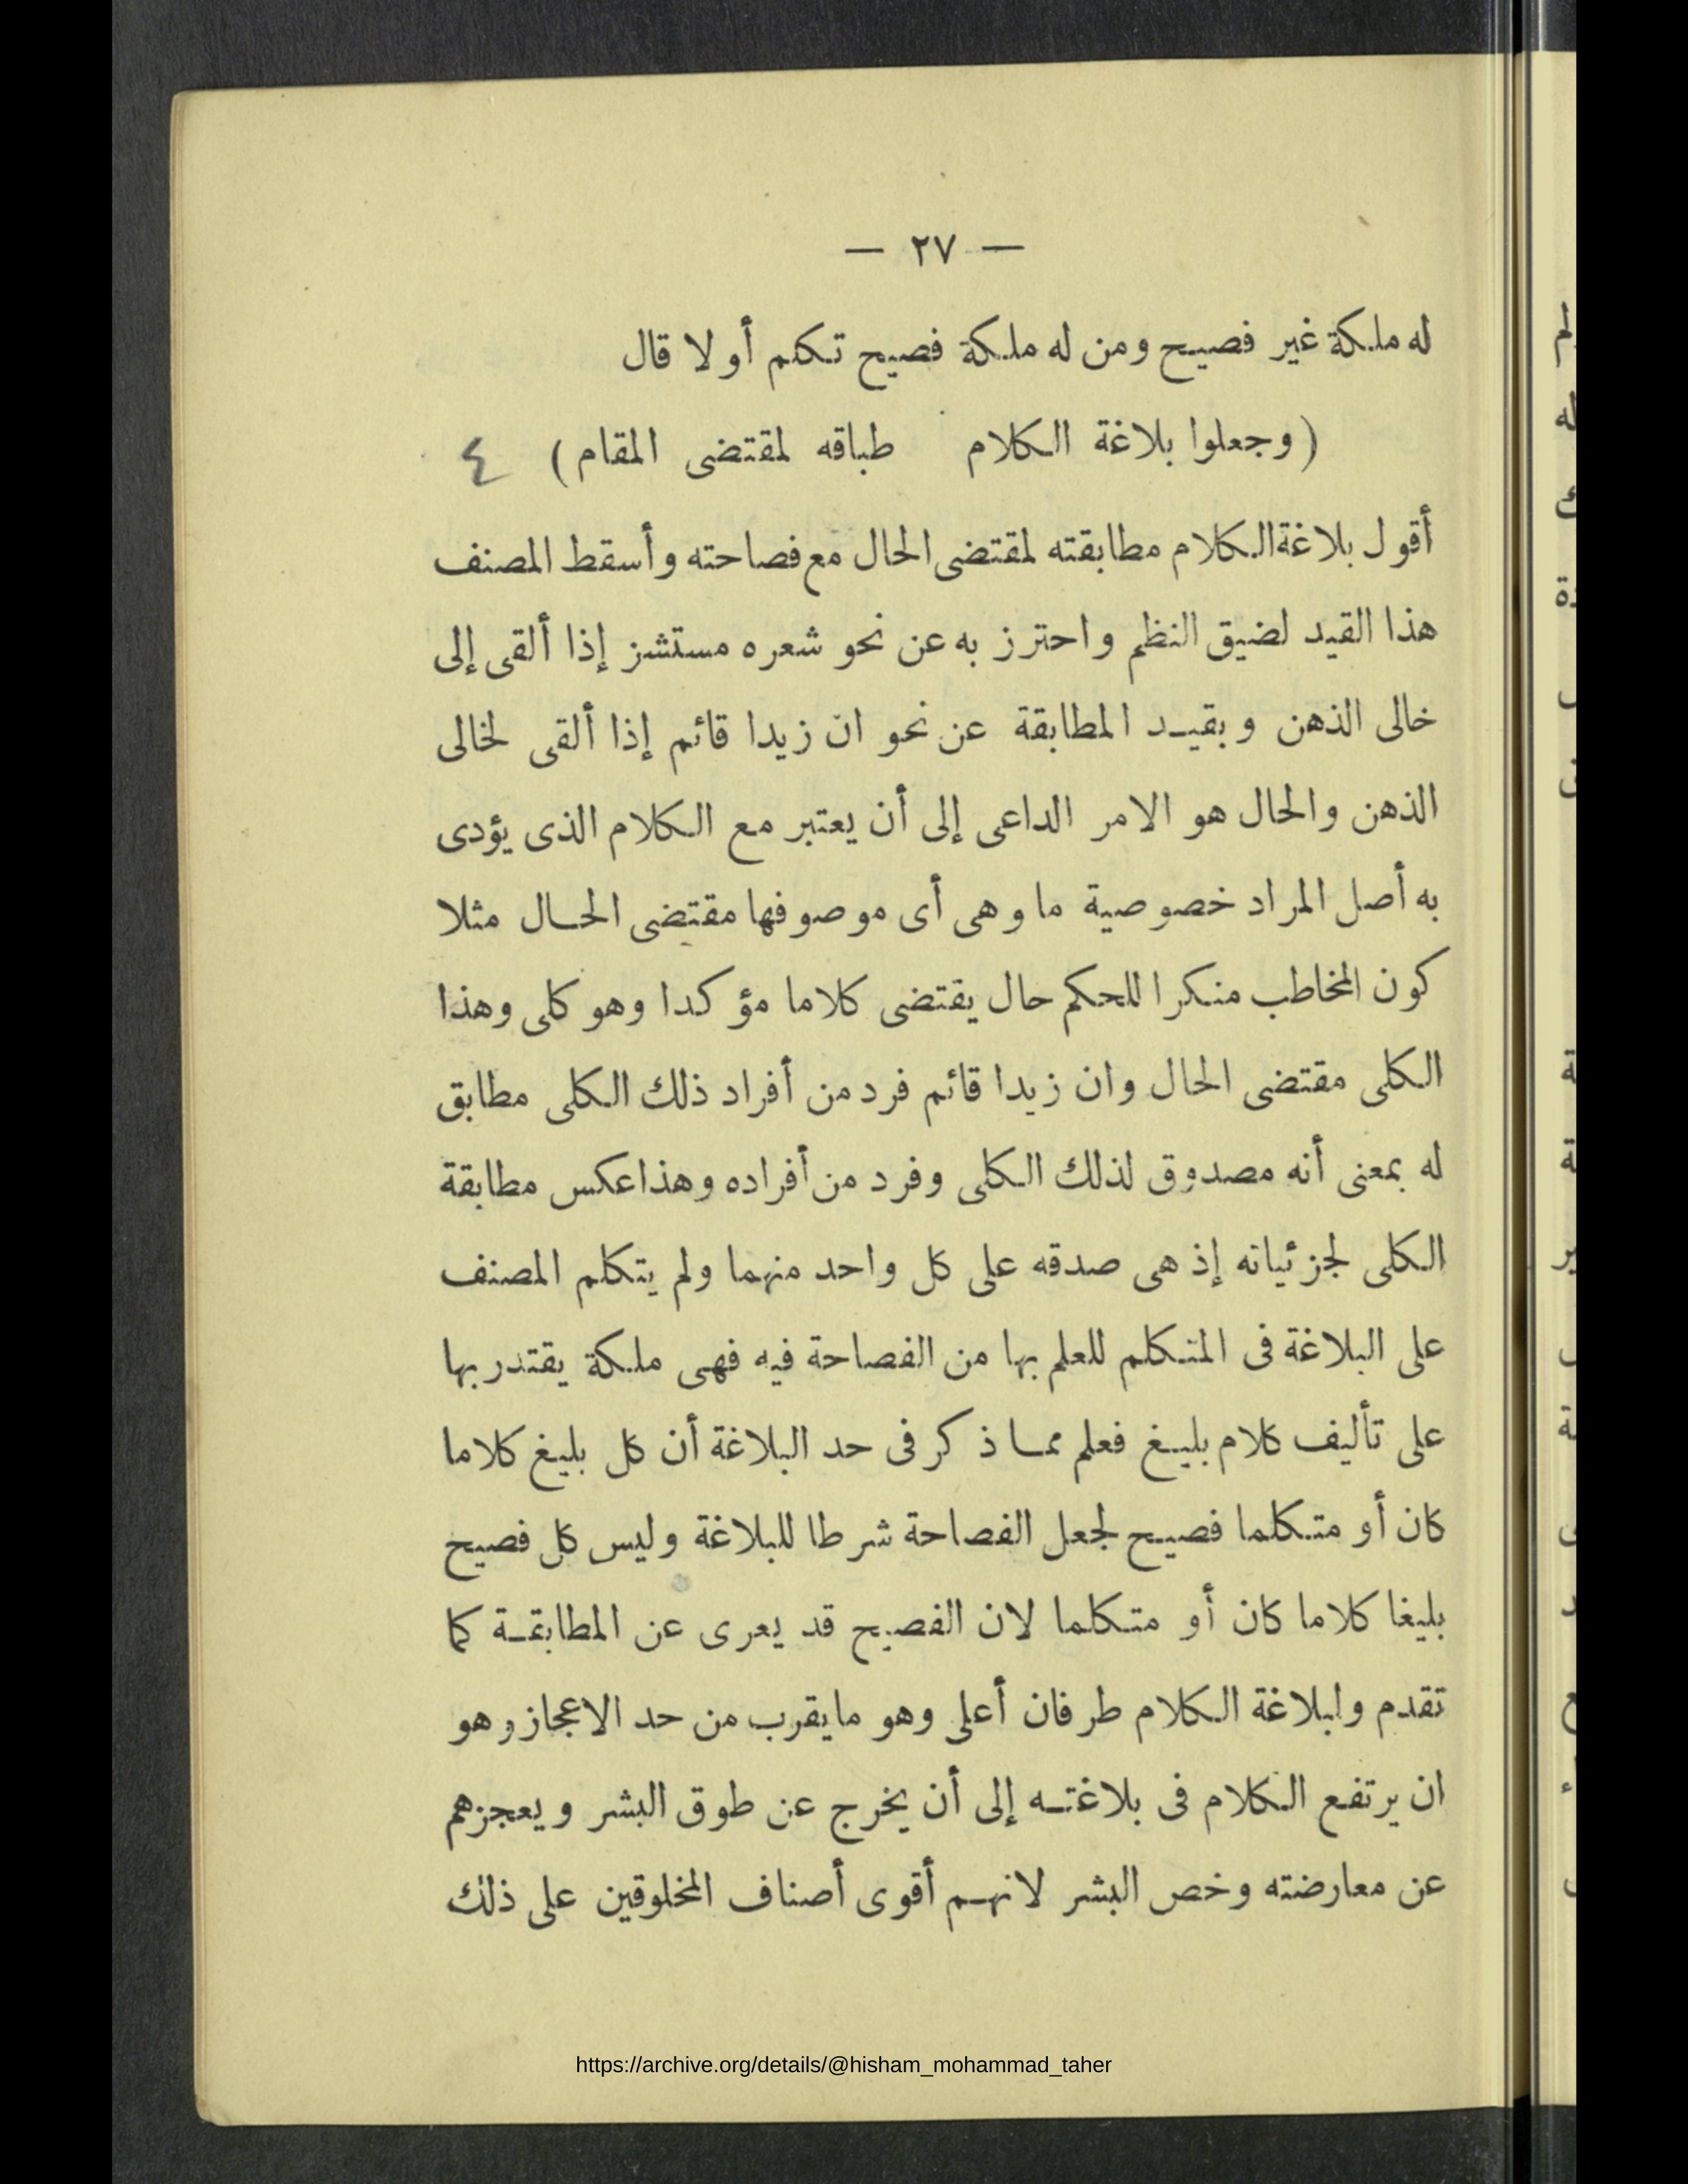 — ٢٧ —
له ملكة غير فصيح ومن له ملكة فصيح تكلم أو لا قال
( وجعلوا بلاغة الكلام طباقه لمقتضى المقام ) ٤
أقول بلاغة الكلام مطابقته لمقتضى الحال مع فصاحته وأسقط المصنف
هذا القيد لضيق النظم واحترز به عن نحو شعره مستشزز إذا ألقى إلى
خالى الذهن وبقيد المطابقة عن نحو ان زيدا قائم إذا ألقى لخالى
الذهن والحال هو الامر الداعى إلى أن يعتبر مع الكلام الذى يؤدى
به أصل المراد خصوصية ما وهى أى موصوفها مقتضى الحال مثلا
كون المخاطب منكرا للحكم حال يقتضى كلاما مؤكدا وهو كلى وهذا
الكلى مقتضى الحال وان زيدا قائم فرد من أفراد ذلك الكلى مطابق
له بمعنى أنه مصدوق لذلك الكلى وفرد من أفراده وهذا عكس مطابقة
الكلى لجزئياته إذ هى صدقه على كل واحد منهما ولم يتكلم المصنف
على البلاغة فى المتكلم للعلم بها من الفصاحة فيه فهى ملكة يقتدر بها
على تأليف كلام بليغ فعلم مما ذكر فى حد البلاغة أن كل بليغ كلاما
كان أو متكلما فصيح لجعل الفصاحة شرطا للبلاغة وليس كل فصيح
بليغا كلاما كان أو متكلما لان الفصيح قد يعرى عن المطابقة كما
تقدم ولبلاغة الكلام طرفان أعلى وهو ما يقرب من حد الاعجاز وهو
ان يرتفع الكلام فى بلاغته إلى أن يخرج عن طوق البشر ويعجزهم
عن معارضته وخص البشر لانهم أقوى أصناف المخلوقين على ذلك
https://archive.org/details/@hisham_mohammad_taher